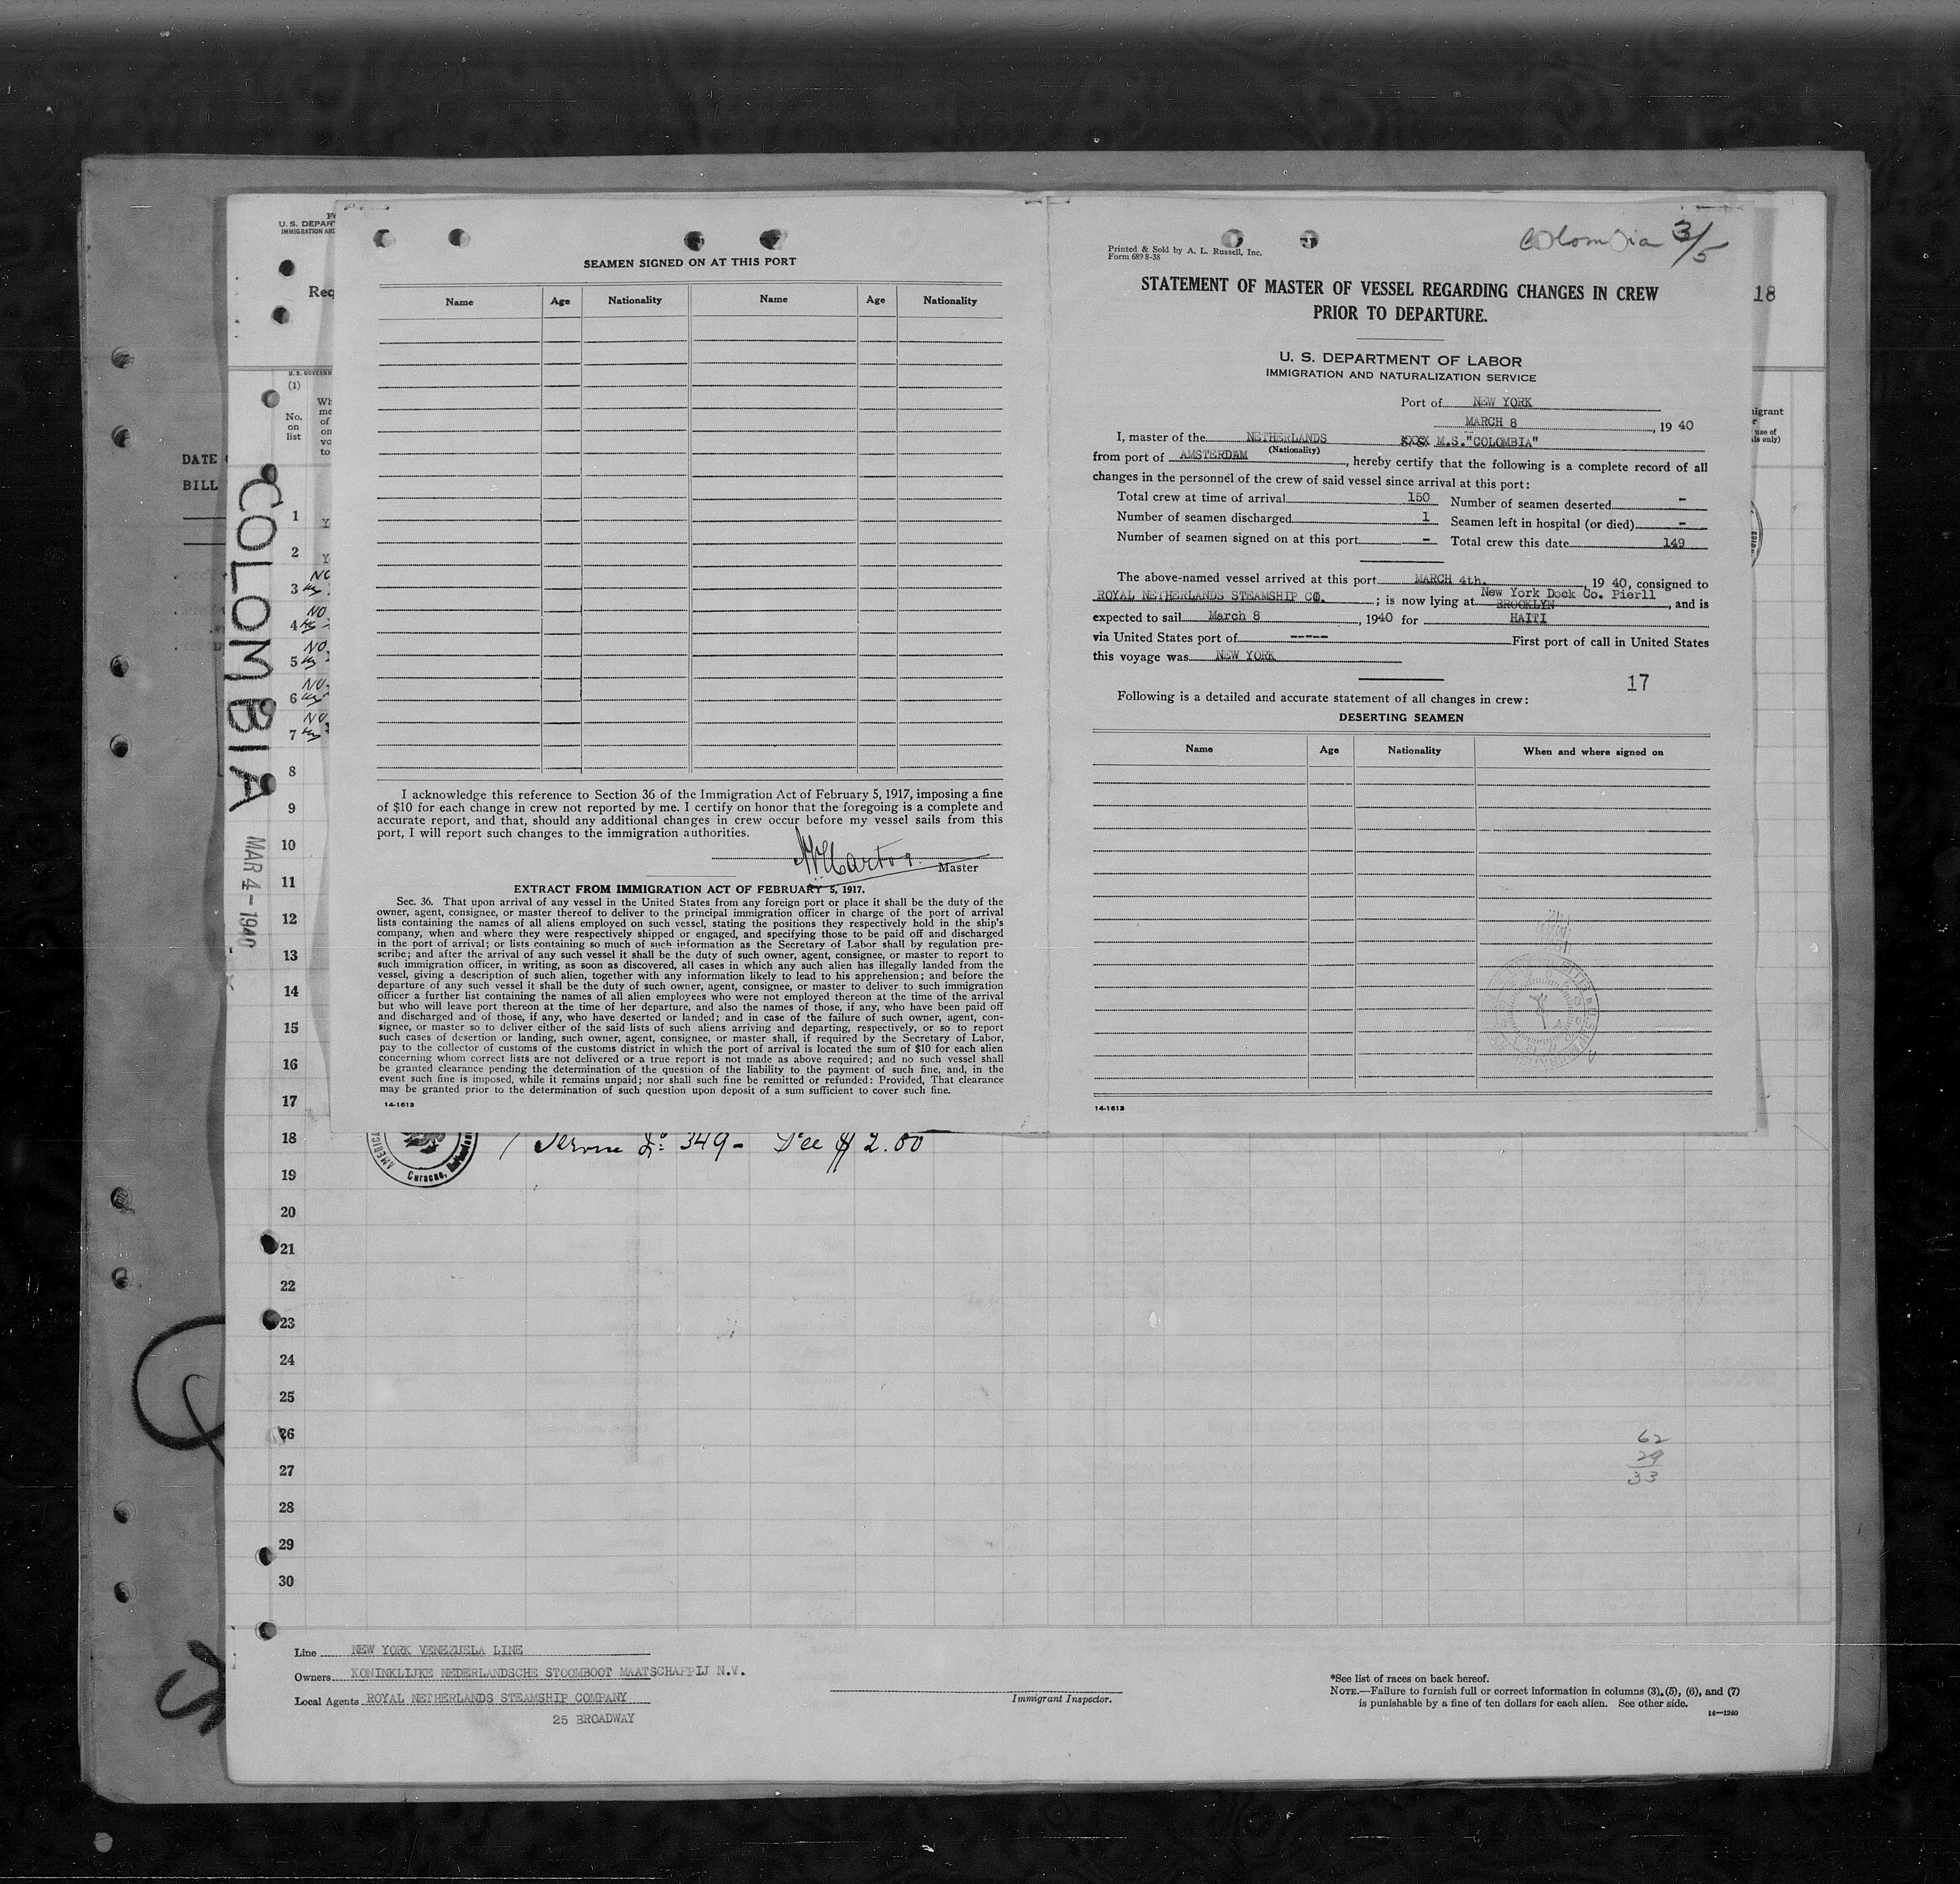 U. S. DEPAR
IMMIGRATION AND
Req
U.S. GOVERN
(1)
No.
on
list
Wh
me
of
on
vo
to
DATE
BILL
COLOMBIA
MAR 4 - 1940
1
2
3
4
5
6
7
8
9
10
11
12
13
14
15
16
17
18
19
20
21
22
23
24
25
26
27
28
29
30
SEAMEN SIGNED ON AT THIS PORT
Name Age Nationality Name Age Nationality
I acknowledge this reference to Section 36 of the Immigration Act of February 5, 1917, imposing a fine
of $10 for each change in crew not reported by me. I certify on honor that the foregoing is a complete and
accurate report, and that, should any additional changes in crew occur before my vessel sails from this
port, I will report such changes to the immigration authorities.
Master
EXTRACT FROM IMMIGRATION ACT OF FEBRUARY 5, 1917.
Sec. 36. That upon arrival of any vessel in the United States from any foreign port or place it shall be the duty of the
owner, agent, consignee, or master thereof to deliver to the principal immigration officer in charge of the port of arrival
lists containing the names of all aliens employed on such vessel, stating the positions they respectively hold in the ship's
company, when and where they were respectively shipped or engaged, and specifying those to be paid off and discharged
in the port of arrival; or lists containing so much of such information as the Secretary of Labor shall by regulation pre-
scribe; and after the arrival of any such vessel it shall be the duty of such owner, agent, consignee, or master to report to
such immigration officer, in writing, as soon as discovered, all cases in which any such alien has illegally landed from the
vessel, giving a description of such alien, together with any information likely to lead to his apprehension; and before the
departure of any such vessel it shall be the duty of such owner, agent, consignee, or master to deliver to such immigration
officer a further list containing the names of all alien employees who were not employed thereon at the time of the arrival
but who will leave port thereon at the time of her departure, and also the names of those, if any, who have been paid off
and discharged and of those, if any, who have deserted or landed; and in case of the failure of such owner, agent, con-
signee, or master so to deliver either of the said lists of such aliens arriving and departing, respectively, or so to report
such cases of desertion or landing, such owner, agent, consignee, or master shall, if required by the Secretary of Labor,
pay to the collector of customs of the customs district in which the port of arrival is located the sum of $10 for each alien
concerning whom correct lists are not delivered or a true report is not made as above required; and no such vessel shall
be granted clearance pending the determination of the question of the liability to the payment of such fine, and, in the
event such fine is imposed, while it remains unpaid; nor shall such fine be remitted or refunded: Provided, That clearance
may be granted prior to the determination of such question upon deposit of a sum sufficient to cover such fine.
14-1613
Printed & Sold by A. L. Russell, Inc.
Form 689 8-38
Colombia 3/5
STATEMENT OF MASTER OF VESSEL REGARDING CHANGES IN CREW
PRIOR TO DEPARTURE.
U. S. DEPARTMENT OF LABOR
IMMIGRATION AND NATURALIZATION SERVICE
Port of NEW YORK
MARCH 8, 19 40
I, master of the NETHERLANDS M.S."COLOMBIA"
(Nationality)
from port of AMSTERDAM, hereby certify that the following is a complete record of all
changes in the personnel of the crew of said vessel since arrival at this port:
Total crew at time of arrival 150 Number of seamen deserted -
Number of seamen discharged 1 Seamen left in hospital (or died) -
Number of seamen signed on at this port - Total crew this date 149
The above-named vessel arrived at this port MARCH 4th., 19 40, consigned to
ROYAL NETHERLANDS STEAMSHIP CO. ; is now lying at New York Dock Co. Pier11 BROOKLYN, and is
expected to sail March 8, 1940 for HAITI
via United States port of ----- First port of call in United States
this voyage was NEW YORK
17
Following is a detailed and accurate statement of all changes in crew:
DESERTING SEAMEN
Name Age Nationality When and where signed on
14-1613
18
migrant
r
use of
ls only)
AMERICA
Curacao,
349- Fee $ 2.00
62
29
33
Line NEW YORK VENEZUELA LINE
Owners KONINKLIJKE NEDERLANDSCHE STOOMBOOT MAATSCHAPPIJ N.V.
Local Agents ROYAL NETHERLANDS STEAMSHIP COMPANY
25 BROADWAY
Immigrant Inspector.
*See list of races on back hereof.
NOTE.—Failure to furnish full or correct information in columns (3), (5), (6), and (7)
is punishable by a fine of ten dollars for each alien. See other side.
14—1240